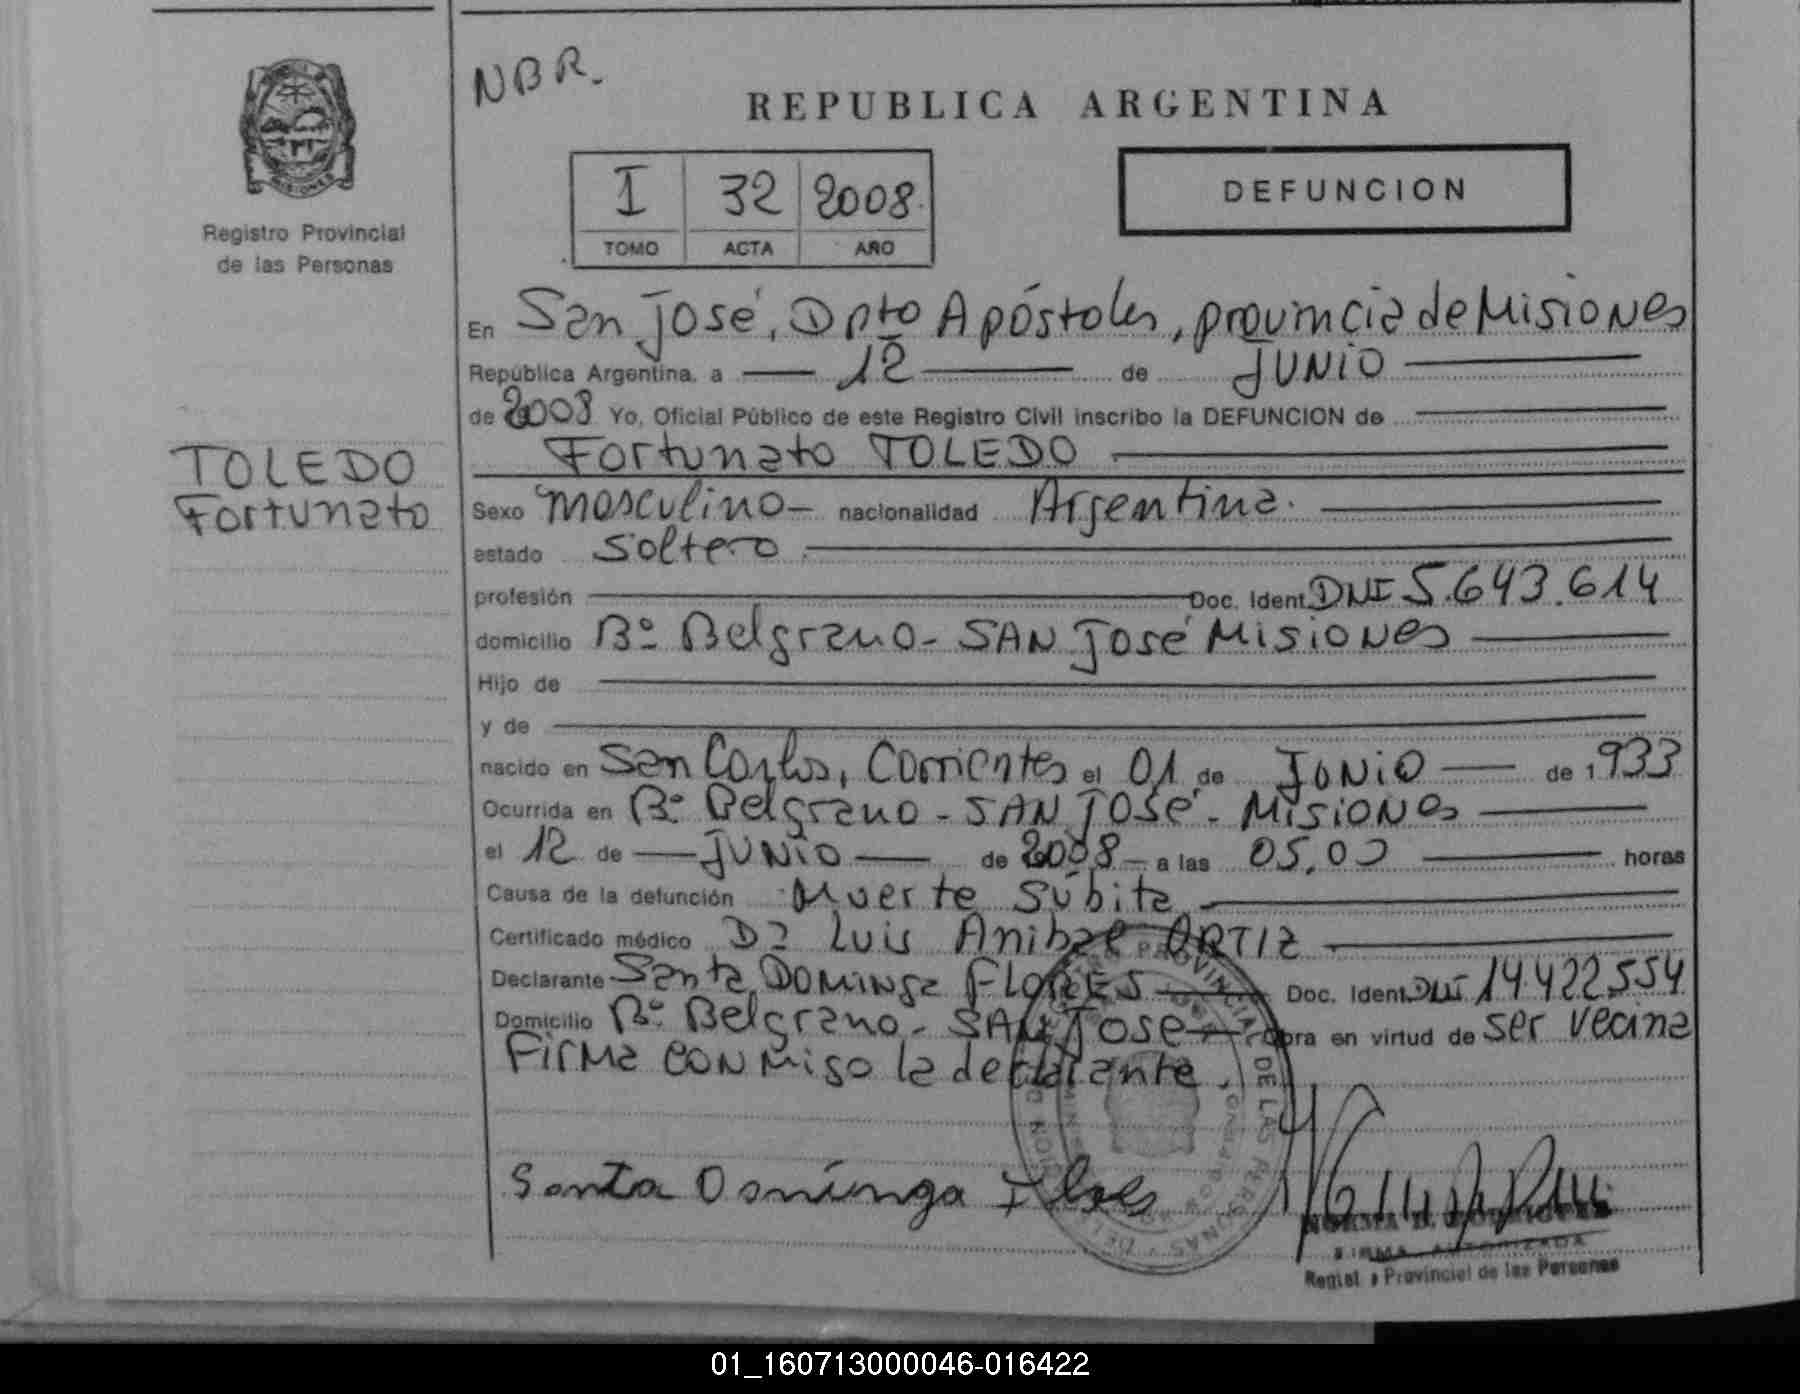 NBR.
REPUBLICA ARGENTINA
MISIONES
Registro Provincial
de las Personas
I 32 2008
TOMO ACTA AÑO
DEFUNCION
En San José, Dpto Apóstoles, provincia de Misiones
República Argentina, a 12 de JUNIO
de 2008 Yo, Oficial Público de este Registro Civil inscribo la DEFUNCION de
Fortunato TOLEDO
TOLEDO
Fortunato
Sexo masculino - nacionalidad Argentina.
estado Soltero
profesión Doc. Ident. DNI 5.643.614
domicilio Bº Belgrano - SAN José Misiones
Hijo de
y de
nacido en San Carlos, Corrientes el 01 de JUNIO de 1933
Ocurrida en Bº Belgrano - SAN José - Misiones
el 12 de JUNIO de 2008 - a las 05,00 horas
Causa de la defunción Muerte Súbita
Certificado médico Dr Luis Anibal ORTIZ
Declarante Santa Dominga FLORES Doc. Ident. DNI 14.422.554
Domicilio Bº Belgrano - SAN José Obra en virtud de ser vecina
Firma conmigo la declarante.
Santa Dominga Flores
PROVINCIAL DE LAS PERSONAS
NORMA B. RODRIGUEZ
FIRMA AUTORIZADA
Regist o Provincial de las Personas
01_160713000046-016422